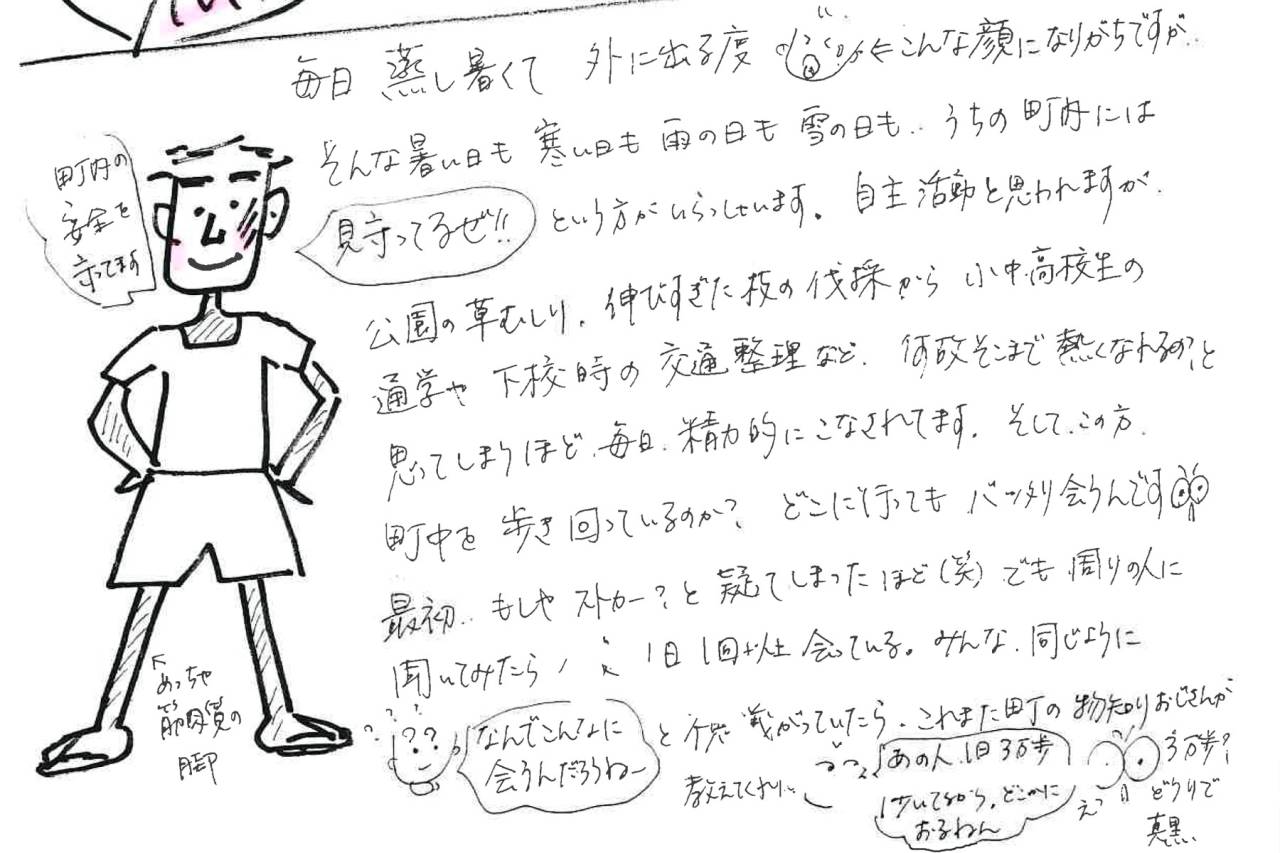 毎日 蒸し暑くて 外に出る度 ←こんな顔になりがちですが..
そんな暑い日も 寒い日も 雨の日も 雪の日も.. うちの町内には
町内の
安全を
守ってます
見守ってるぜ!! という方がいらっしゃいます。自主活動と思われますが、
公園の草むしり、伸びすぎた枝の伐採から 小中高校生の
通学や下校時の交通整理など、何故そこまで熱くなれるの?と
思ってしまうほど、毎日、精力的にこなされてます。そして、この方、
町中を歩き回っているのか? どこに行っても バッタリ会うんです
最初.. もしやストーカー?と疑てしまったほど(笑)でも周りの人に
聞いてみたら 1日1回以上会っている。みんな、同じように
めっちゃ
筋肉質の
脚
???
??
なんでこんなに
会うんだろうねー
と がっていたら、これまた町の物知りおじさんが
教えてくれ
あの人、1日3万歩
歩いてるから、どこかに
おるねん
えっ
3万歩?
どうりで
真黒、